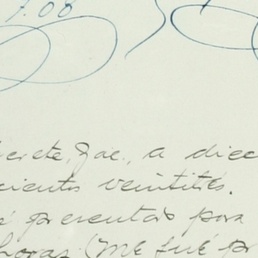 7.00
erete, Zac., a diec
cientos veintités.
é presentas para
horas (me fué pr